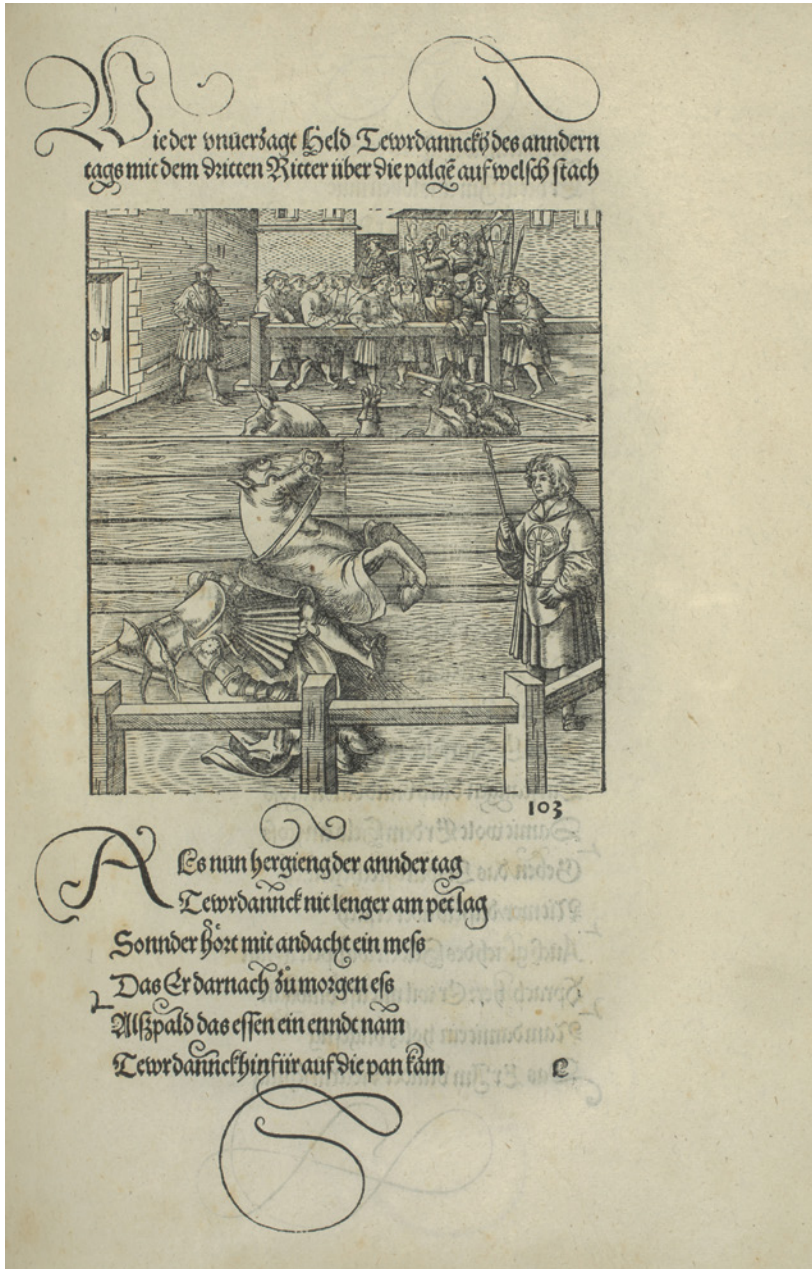 Wie der vnuerzagt Held Tewrdannckh des anndern
tags mit dem dritten Ritter über die palgē auf welsch stach
103
Als nun hergieng der annder tag
Tewrdannck nit lenger am pet lag
Sonnder hört mit andacht ein mess
Das Er darnach zů morgen ess
Alßpald das essen ein enndt nam
Tewrdannckh hinfür auf die pan kam